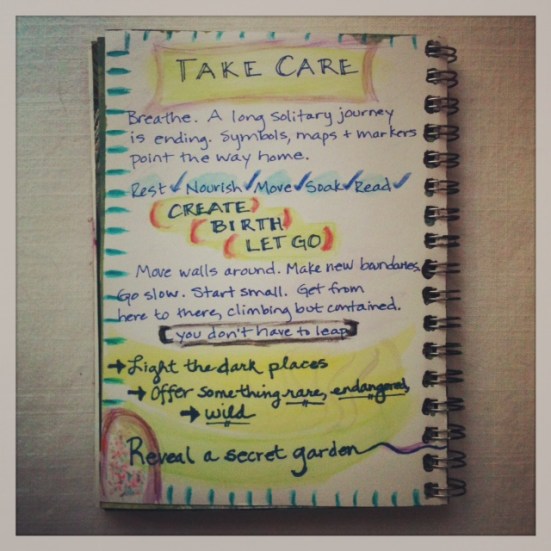 TAKE CARE
Breathe. A long solitary journey
is ending. Symbols, maps + markers
point the way home.
Rest ✓ Nourish ✓ Move ✓ Soak ✓ Read ✓
(CREATE)
(BIRTH)
(LET GO)
Move walls around. Make new boundaries.
Go slow. Start small. Get from
here to there, climbing but contained.
[you don't have to leap]
→ Light the dark places
→ Offer something rare, endangered,
→ wild
Reveal a secret garden